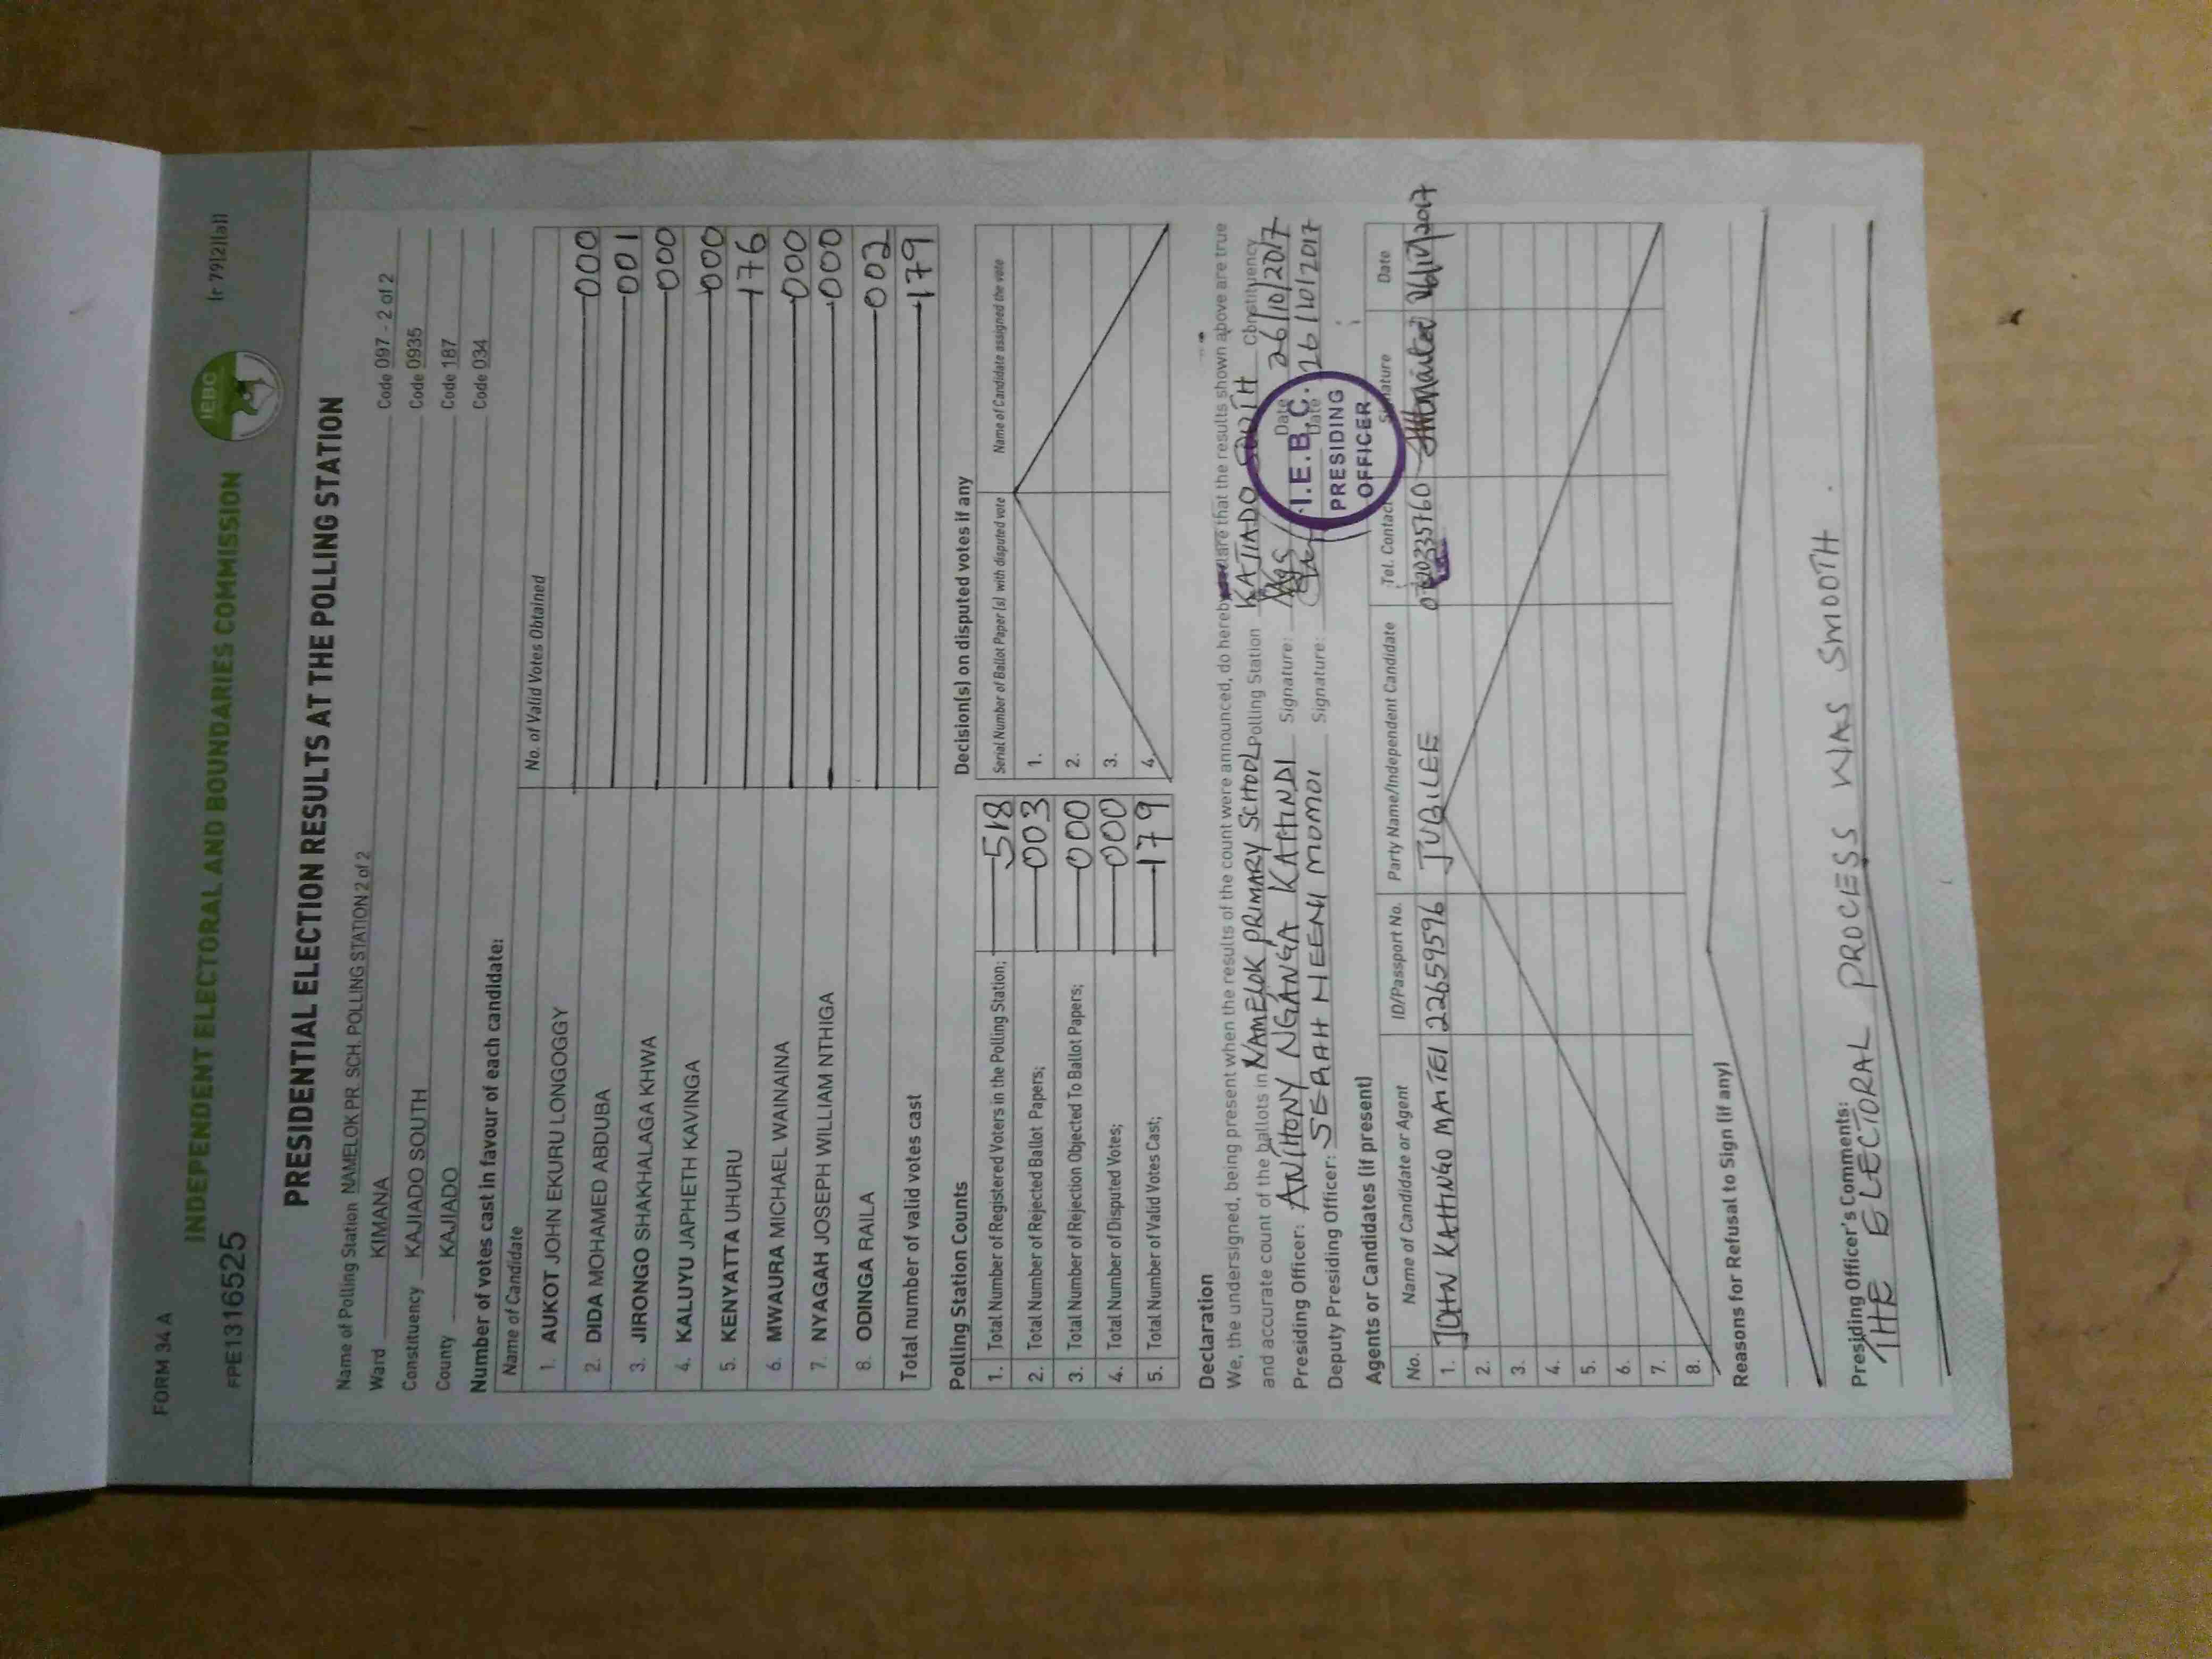 FORM 34 A
(r 79(2)(a))
FPE1316525
INDEPENDENT ELECTORAL AND BOUNDARIES COMMISSION
IEBC
PRESIDENTIAL ELECTION RESULTS AT THE POLLING STATION
Name of Polling Station NAMELOK PR. SCH. POLLING STATION 2 of 2 Code 097 - 2 of 2
Ward KIMANA Code 0935
Constituency KAJIADO SOUTH Code 187
County KAJIADO Code 034
Number of votes cast in favour of each candidate:
Name of Candidate No. of Valid Votes Obtained
1. AUKOT JOHN EKURU LONGOGGY 000
2. DIDA MOHAMED ABDUBA 001
3. JIRONGO SHAKHALAGA KHWA 000
4. KALUYU JAPHETH KAVINGA 000
5. KENYATTA UHURU 176
6. MWAURA MICHAEL WAINAINA 000
7. NYAGAH JOSEPH WILLIAM NTHIGA 000
8. ODINGA RAILA 002
Total number of valid votes cast 179
Polling Station Counts
1. Total Number of Registered Voters in the Polling Station; 518
2. Total Number of Rejected Ballot Papers; 003
3. Total Number of Rejection Objected To Ballot Papers; 000
4. Total Number of Disputed Votes; 000
5. Total Number of Valid Votes Cast; 179
Decision(s) on disputed votes if any
Serial Number of Ballot Paper (s) with disputed vote Name of Candidate assigned the vote
1.
2.
3.
4.
Declaration
We, the undersigned, being present when the results of the count were announced, do hereby declare that the results shown above are true
and accurate count of the ballots in NAMELOK PRIMARY SCHOOL Polling Station KAJIADO SOUTH Constituency
Presiding Officer: ANTHONY NGANGA KATHINDI Signature: Date 26/10/2017
Deputy Presiding Officer: SERAH NEENI MOMOI Signature: Date 26/10/2017
I.E.B.C.
PRESIDING
OFFICER
Agents or Candidates (if present)
No. Name of Candidate or Agent ID/Passport No. Party Name/Independent Candidate Tel. Contact Signature Date
1. JOHN KATHINGO MAITEI 22659596 JUBILEE
2.
3.
4.
5.
6.
7.
8.
Reasons for Refusal to Sign (if any)
Presiding Officer's Comments:
THE ELECTORAL PROCESS WAS SMOOTH.